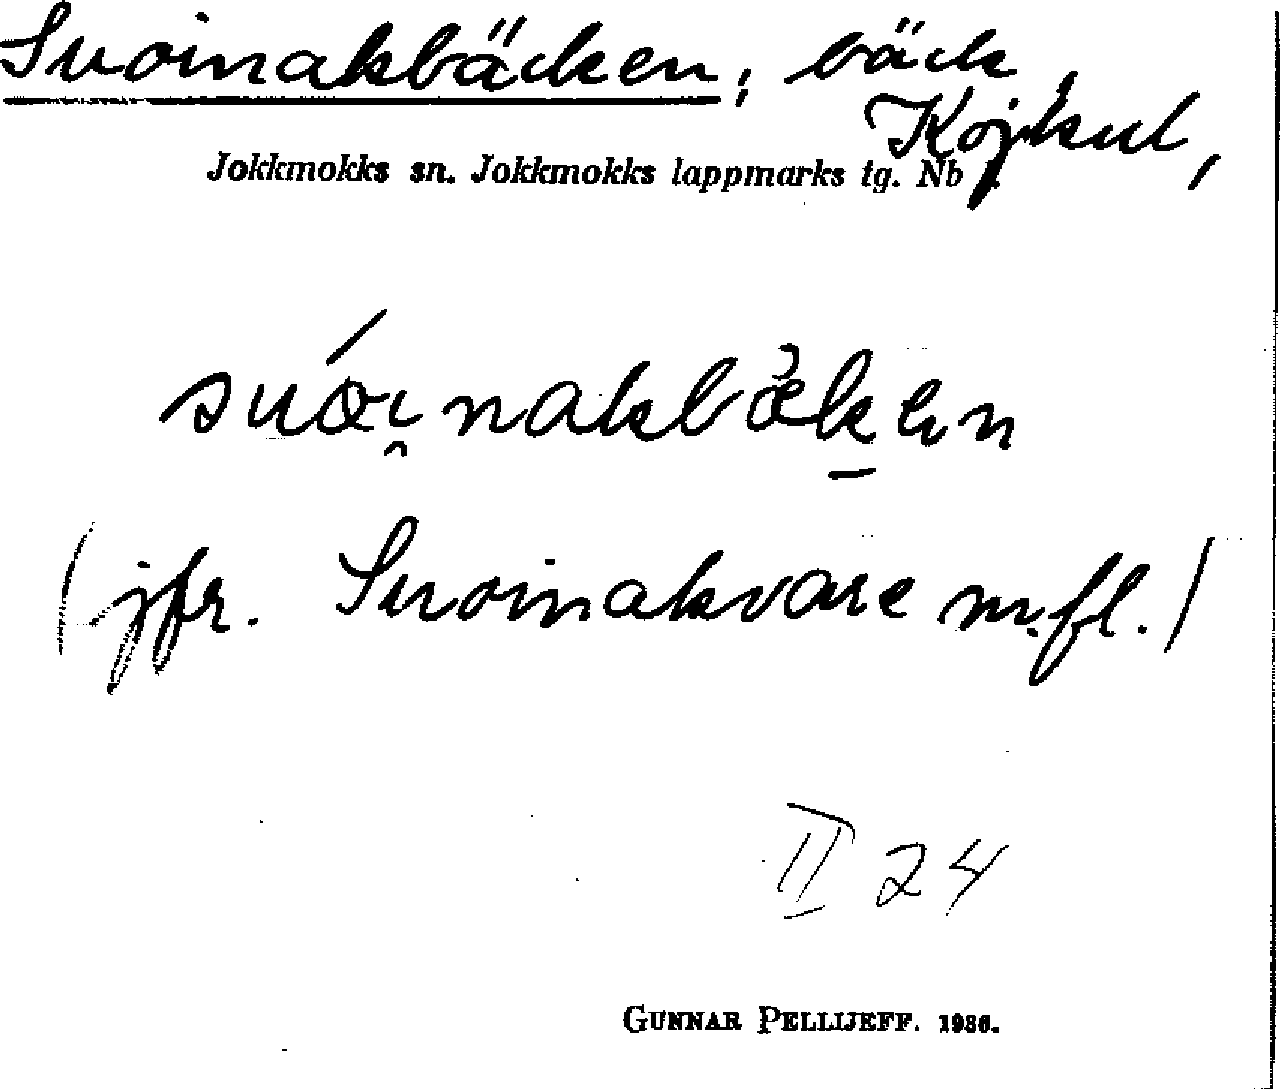 Suoinakbäcken; bäck,
Kojkul,
Jokkmokks sn. Jokkmokks lappmarks tg. Nb
suói̯nakbæken
(jfr. Suoinakvare m.fl.)
II 24
GUNNAR PELLIJEFF. 1936.